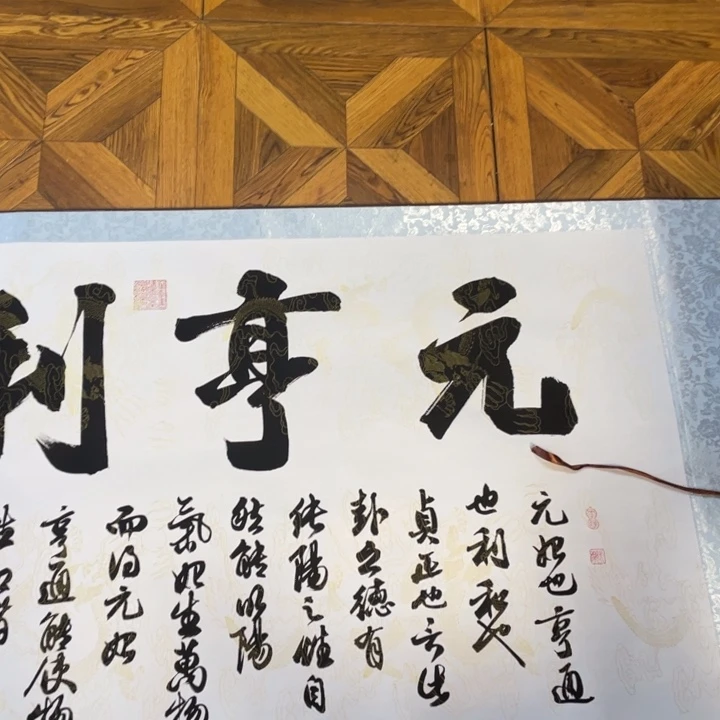 元亨利
元始也亨通
也利和也
貞正也言此
卦之德有
純陽之性自
然能以陽
氣始生萬物
而得元始
亨通能使物